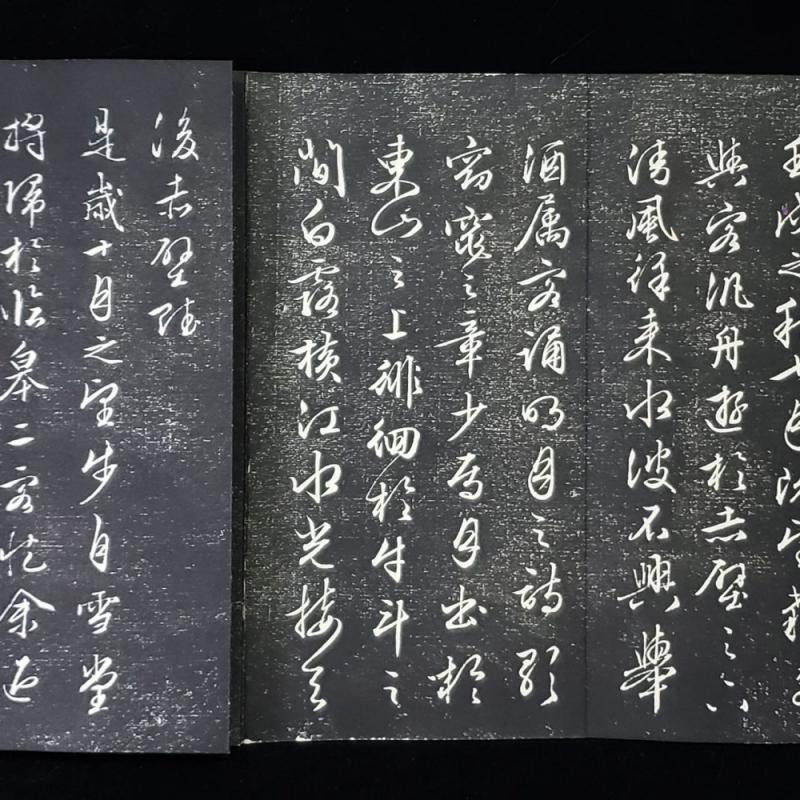 壬戌之秋七月既望蘇子
與客汎舟遊於赤壁之下
清風徐來水波不興舉
酒属客誦明月之詩歌
窈窕之章少焉月出於
東山之上徘徊於牛斗之
間白露橫江水光接天
後赤壁賦
是歲十月之望步自雪堂
將歸於臨皋二客從余過